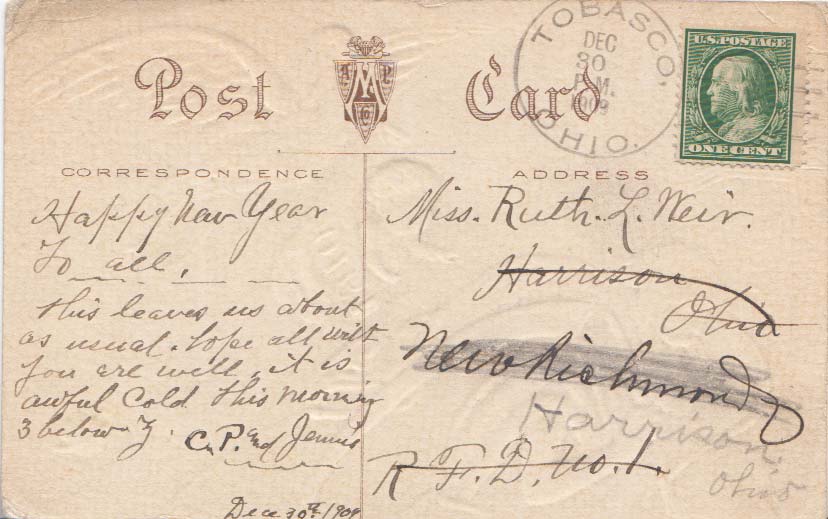 Post Card
A M P Co
TOBASCO,
DEC
30
P.M.
1909
OHIO.
U.S. POSTAGE
ONE CENT
CORRESPONDENCE
ADDRESS
Happy New Year
To all.
this leaves us about
as usual. hope all with
you are well, it is
awful cold this morning
3 below z. C.P. and Jennie
Dec 30th 1909
Miss. Ruth. L. Weir.
Harrison
Ohio
New Richmond
Harrison,
Ohio
R F. D. No. 1.